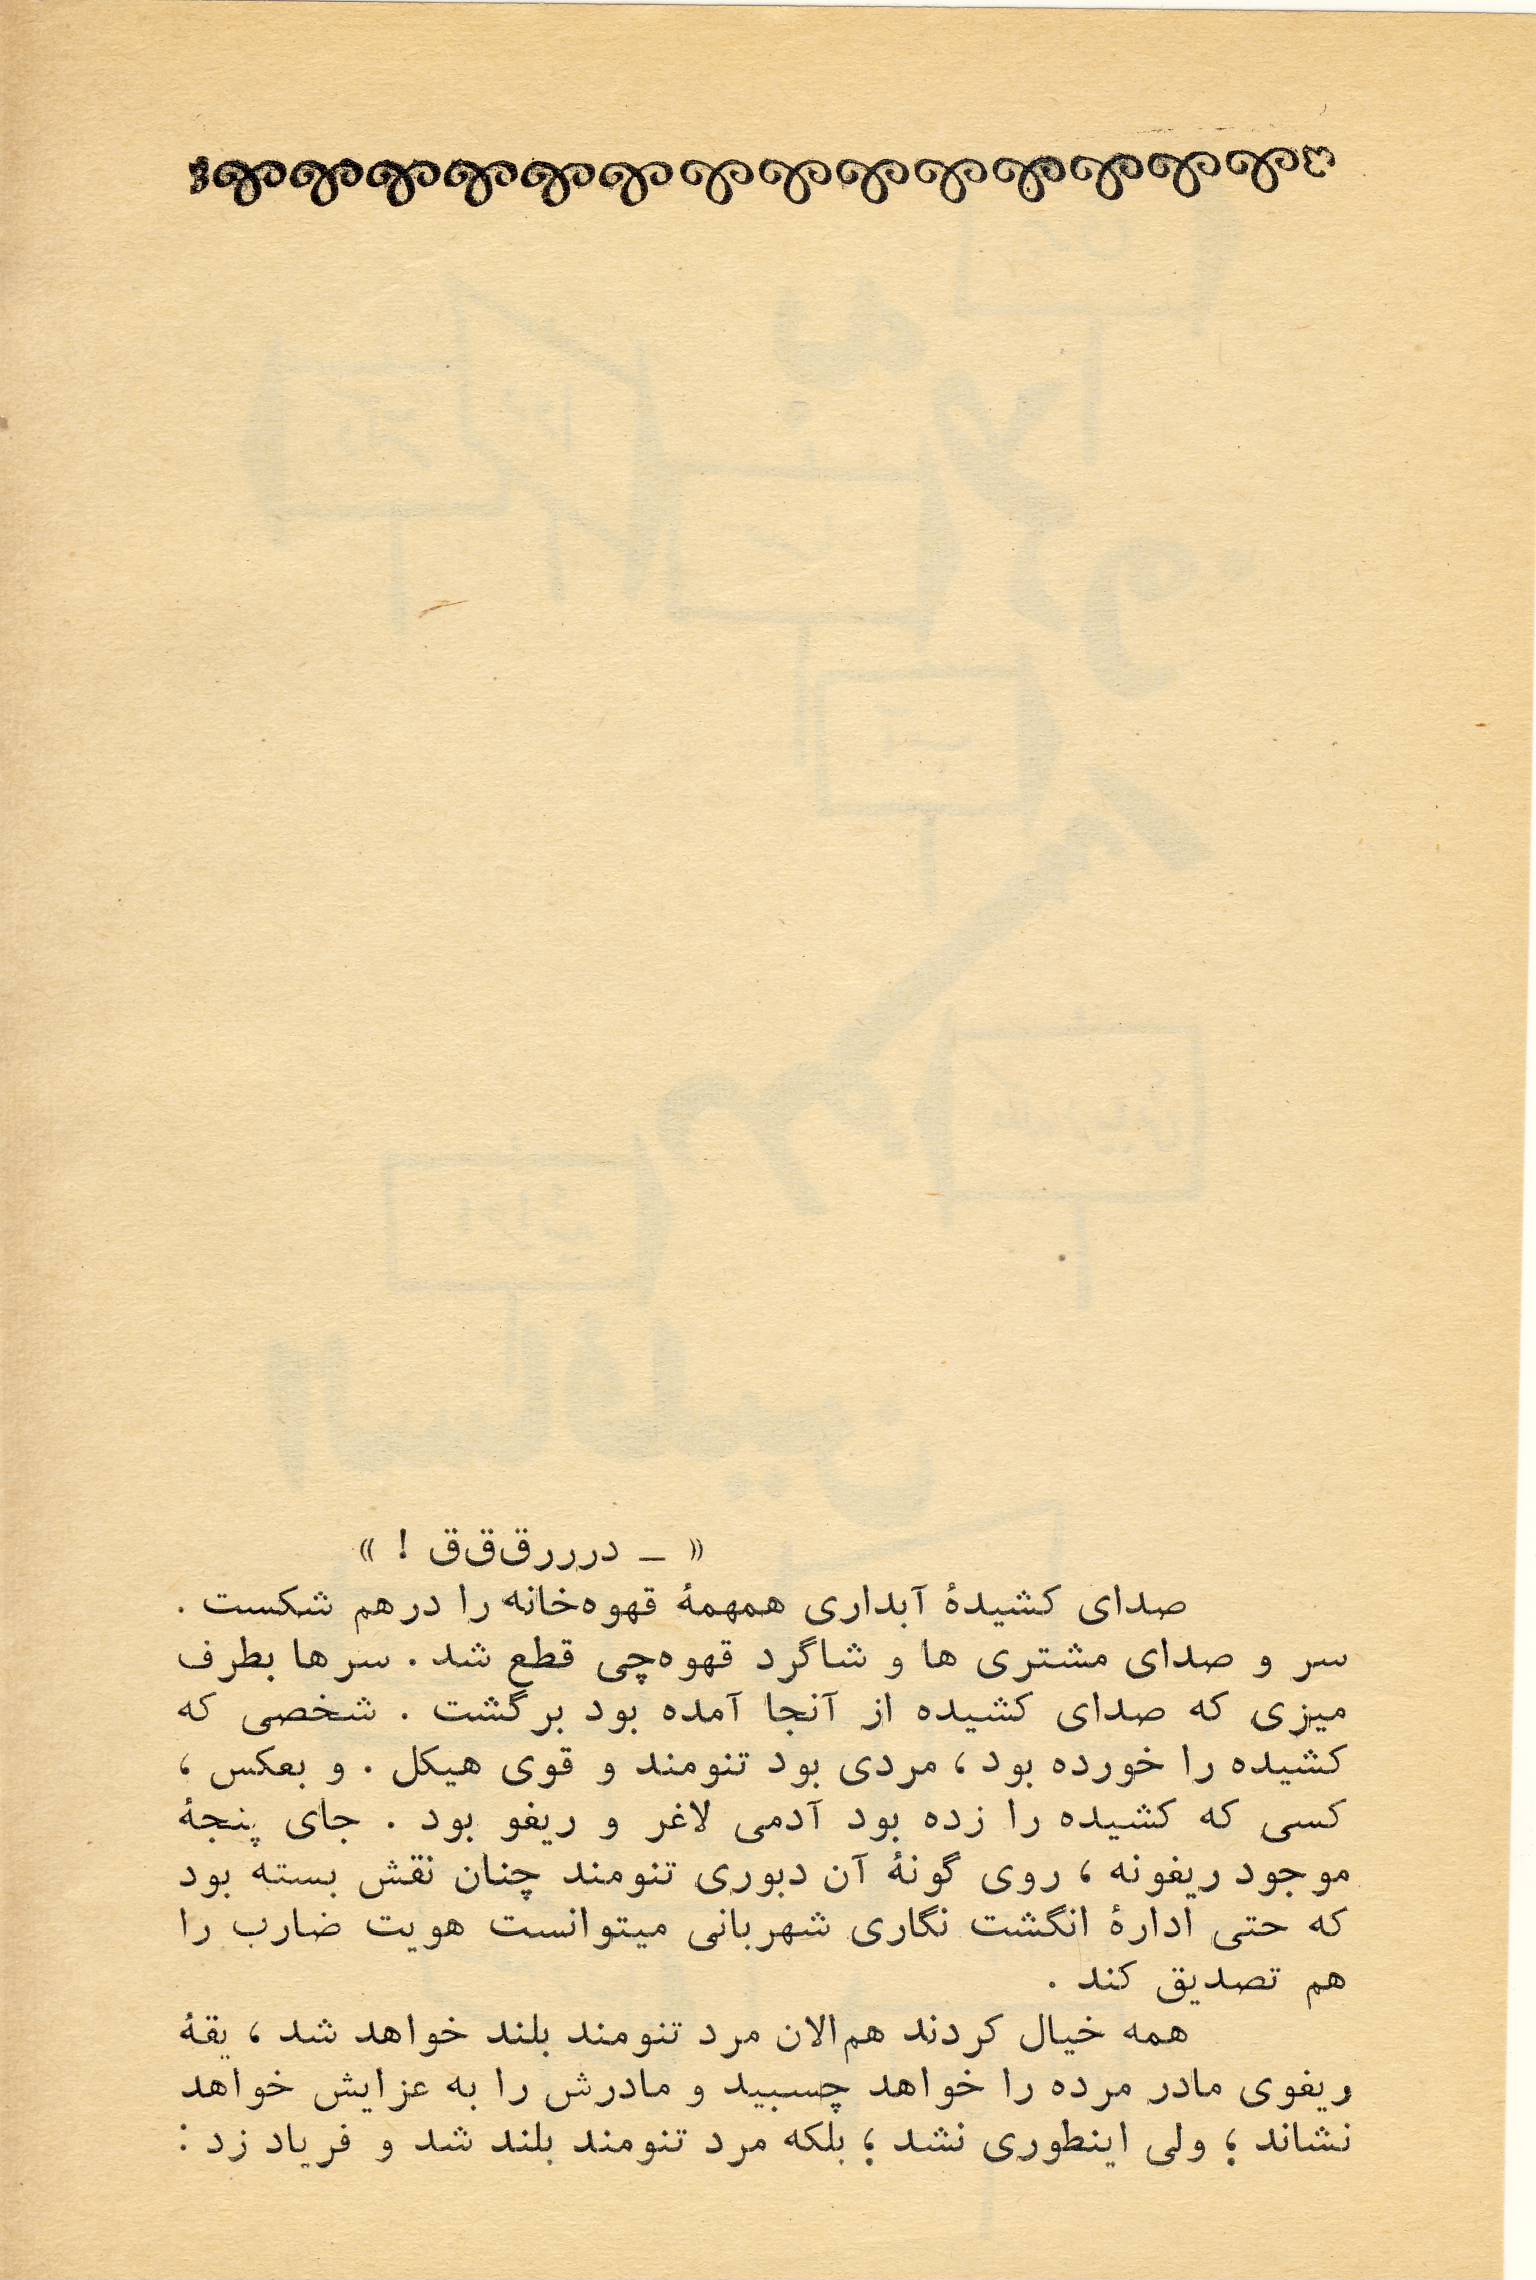 « – درررق‌ق‌ق ! »
صدای کشیدهٔ آبداری همهمهٔ قهوه‌خانه را درهم شکست .
سر و صدای مشتری ها و شاگرد قهوه‌چی قطع شد . سرها بطرف
میزی که صدای کشیده از آنجا آمده بود برگشت . شخصی که
کشیده را خورده بود ، مردی بود تنومند و قوی هیکل . و بعکس ،
کسی که کشیده را زده بود آدمی لاغر و ریفو بود . جای پنجهٔ
موجود ریفونه ، روی گونهٔ آن دبوری تنومند چنان نقش بسته بود
که حتی ادارهٔ انگشت نگاری شهربانی میتوانست هویت ضارب را
هم تصدیق کند .
همه خیال کردند هم‌الان مرد تنومند بلند خواهد شد ، یقهٔ
ریفوی مادر مرده را خواهد چسبید و مادرش را به عزایش خواهد
نشاند ؛ ولی اینطوری نشد ؛ بلکه مرد تنومند بلند شد و فریاد زد :